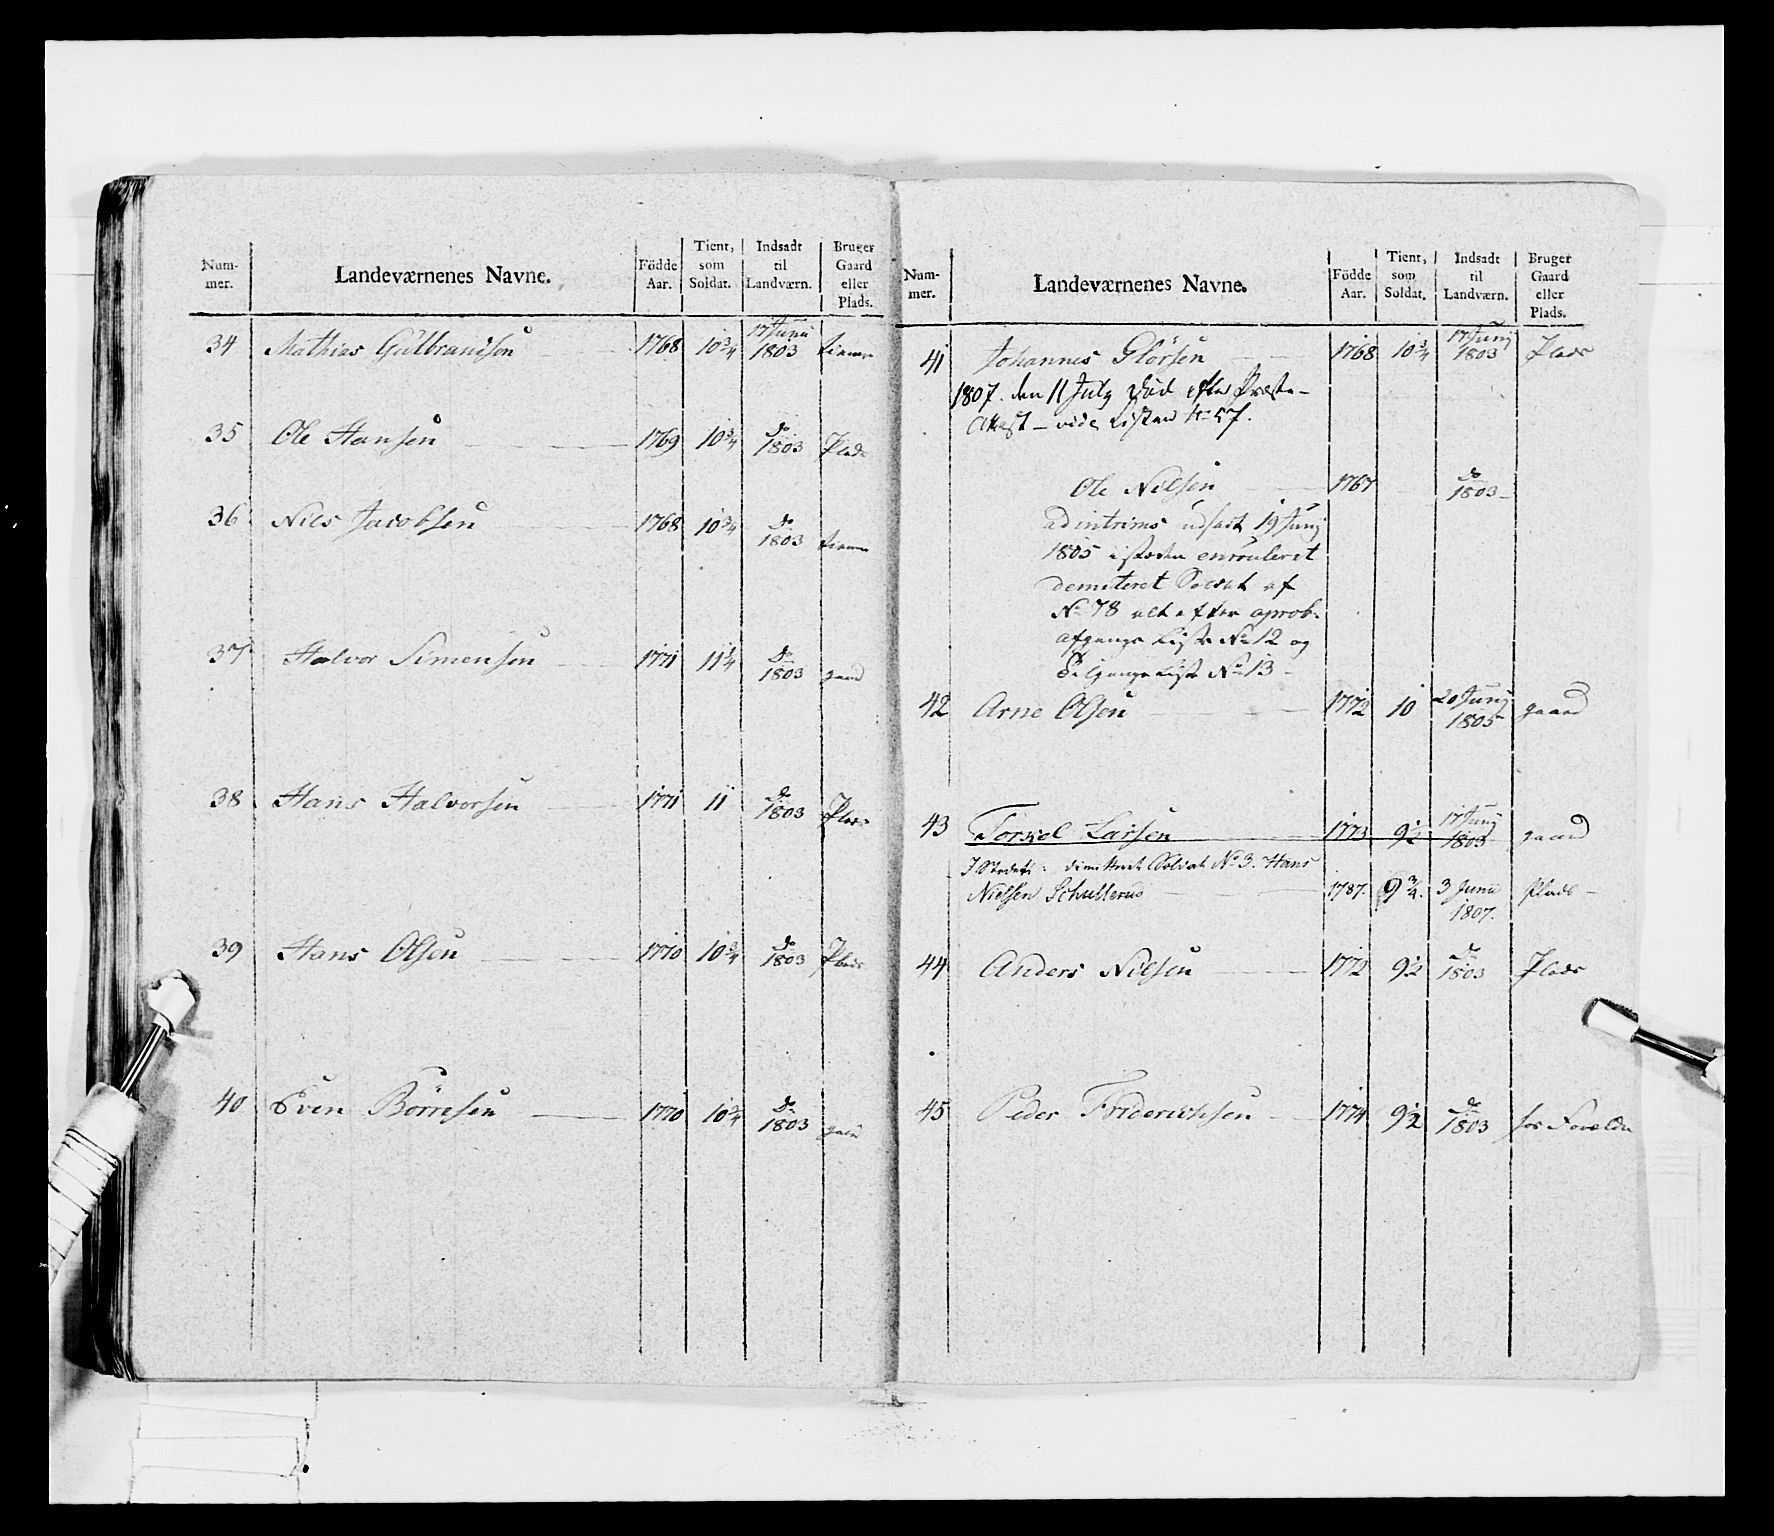 Num-
mer.
Landeværnenes Navne.
Födde
Aar.
Tient,
som
Soldat.
Indsadt
til
Landværn.
Bruger
Gaard
eller
Plads.
34 Mathias Gulbrandsen 1768 10¾ 17 Junii 1803 tiener
35 Ole Hansen 1769 10¾ do 1803 Plads
36 Niels Jacobsen 1768 10¾ do 1803 tiener
37 Halvor Simensen 1771 11¼ do 1803 gaard
38 Hans Halvorsen 1771 11 do 1803 Plads
39 Hans Olsen 1770 10¾ do 1803 Plads
40 Even Börresen 1770 10¾ do 1803 gaard
Num-
mer.
Landeværnenes Navne.
Födde
Aar.
Tient,
som
Soldat.
Indsadt
til
Landværn.
Bruger
Gaard
eller
Plads.
41 Johannes Glörsen 1768 10¾ 17 Junij 1803 Plads
1807. den 11 July død efter Præste-
Attest – vide Listen No 57.
Ole Nilsen 1767 do 1803
ad intrims udsadt 19 Junij
1805 i steden enrouleret
demiteret Soldat af
No 78 alt efter aprob.
afgangs Liste No 12 og
Tilgangs Liste No 13
42 Arne Olsen 1772 10 20 Junij 1805 gaard
43 Torkel Larsen 1773 9½ 17 Junij 1803 gaard
I Stedet: dimitteret Soldat No 3. Hans
Nielsen Schullerud 1787. 9¾. 3 Junii 1807. Plads –
44 Anders Nilsen 1772 9½ do 1803 Plads
45 Peder Friderichsen 1774 9½ do 1803 hos Forældre